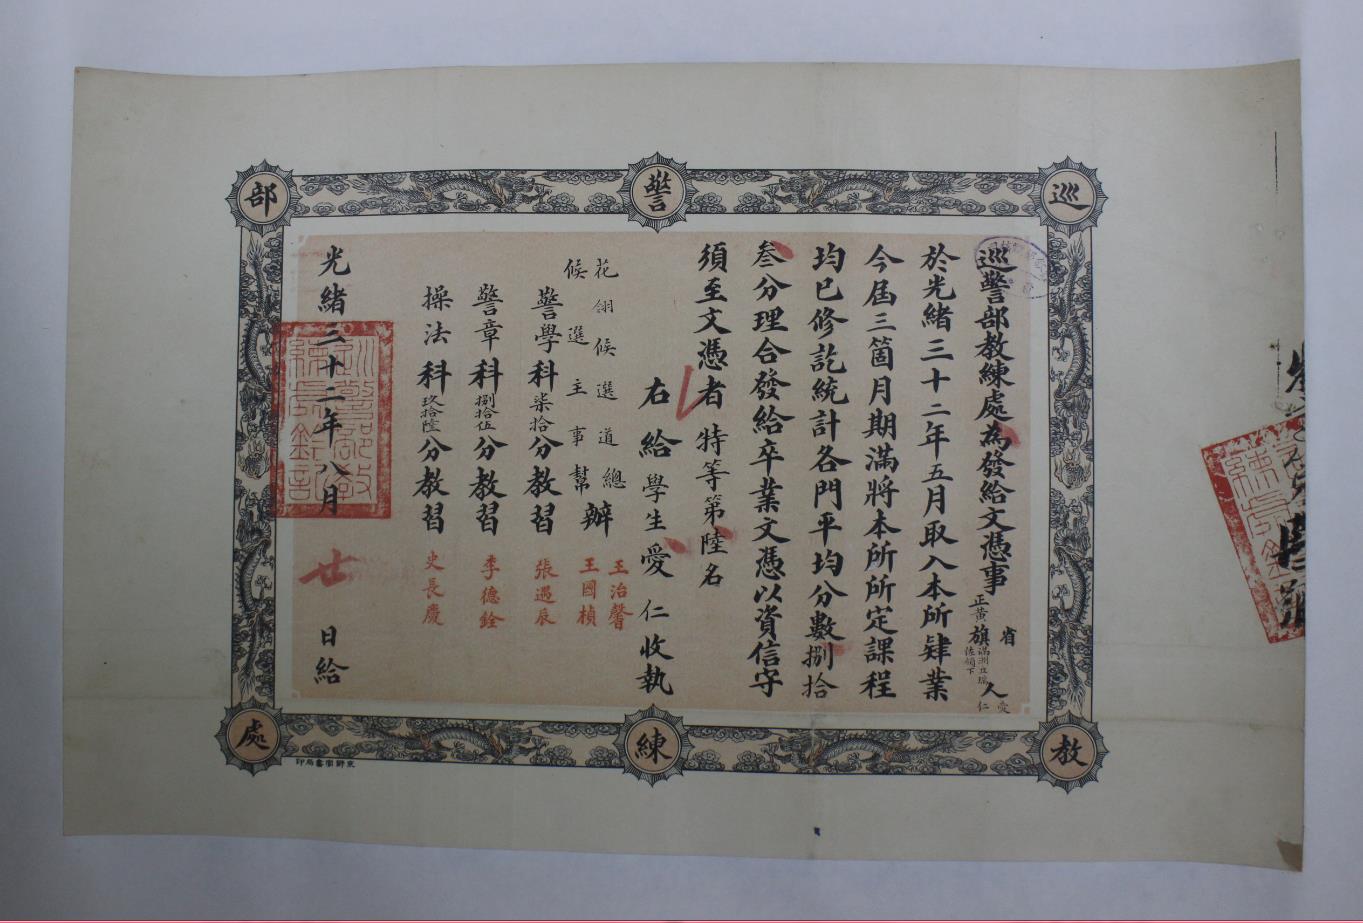 巡警部
教練處
巡警部教練處為發給文憑事
省
正黃旗滿洲立瑞佐領下人愛仁
於光緒三十二年五月取入本所肄業
今屆三箇月期滿將本所所定課程
均已修訖統計各門平均分數捌拾
叁分理合發給卒業文憑以資信守
須至文憑者特等第陸名
右給學生愛仁收執
花翎候選道總辦王治馨
候選主事幫辦王國楨
警學科柒拾分教習張遇辰
警章科捌拾伍分教習李德銓
操法科玖拾陸分教習史長慶
光緒三十二年八月廿日給
京師官書局印